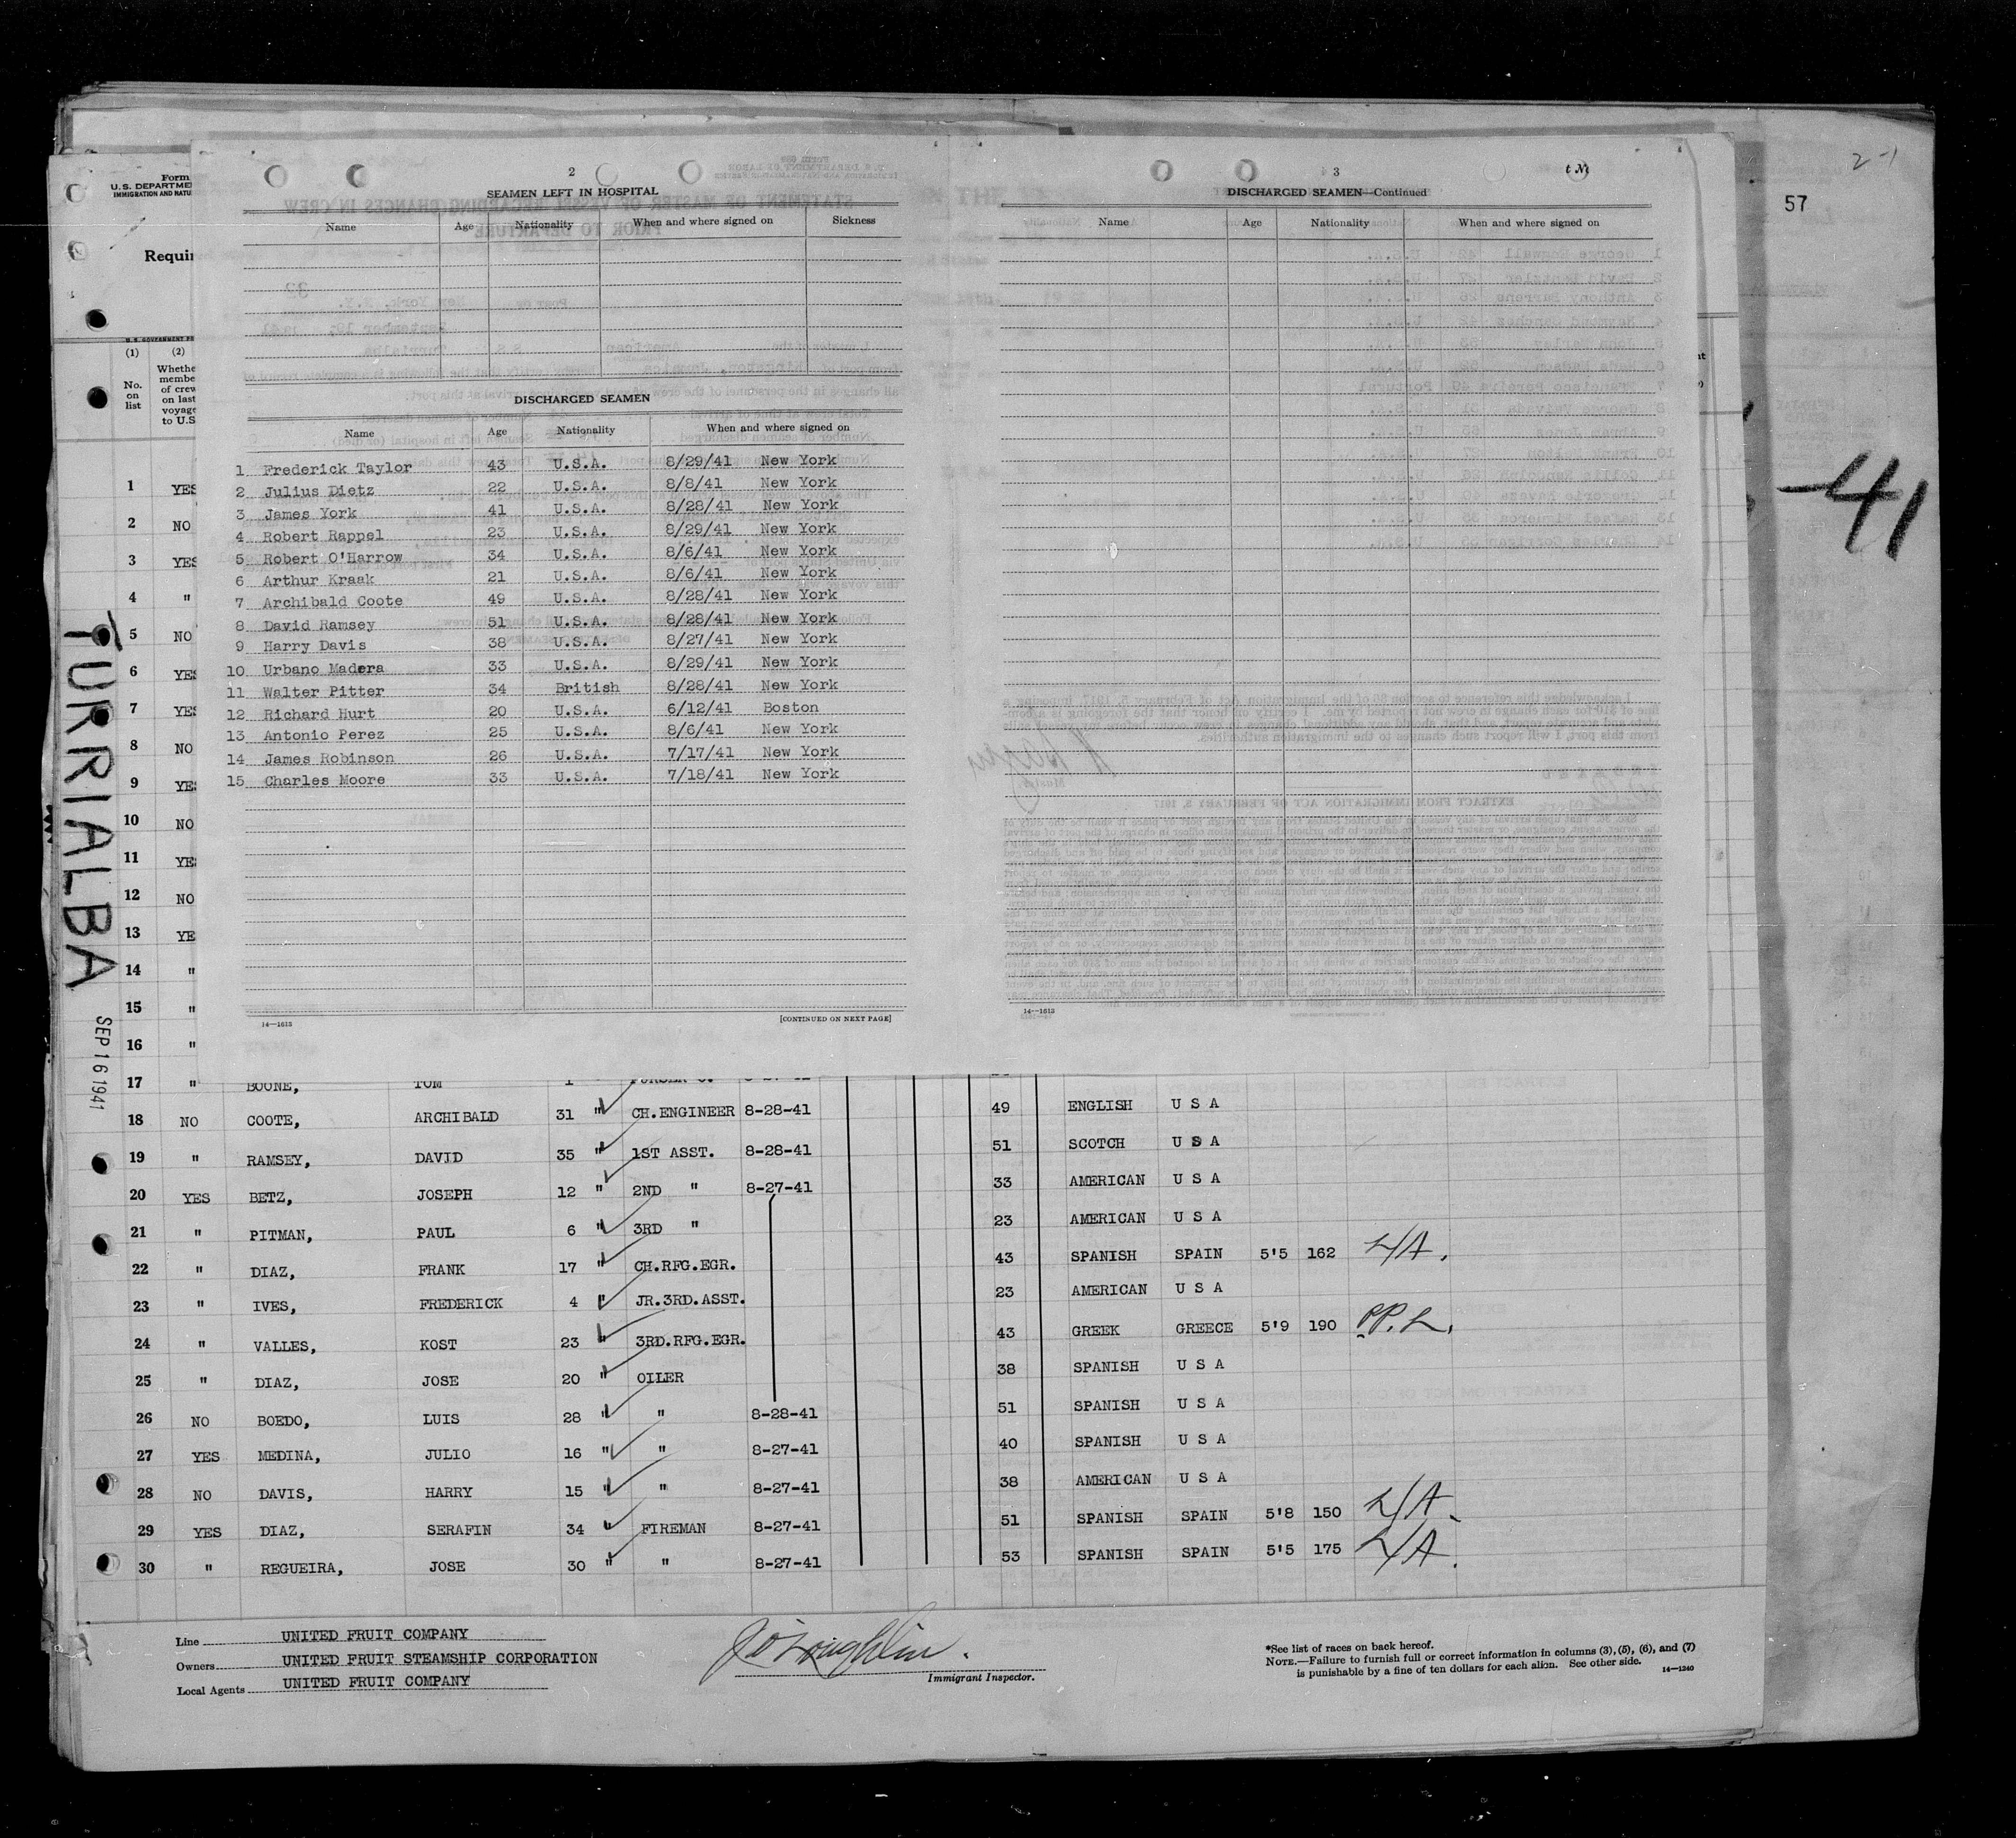 2-1
57
-41
TURRIALBA
SEP 16 1941
Form
U.S. DEPARTME
IMMIGRATION AND NATU
Requir
(1) (2)
No. on list
Whethe membe of crew on last voyage to U.S
1 YES
2 NO
3 YES
4 "
5 NO
6 YES
7 YES
8 NO
9 YES
10 NO
11 YES
12 NO
13 YE
14 "
15 "
16 "
2
SEAMEN LEFT IN HOSPITAL
Name Age Nationality When and where signed on Sickness
DISCHARGED SEAMEN
Name Age Nationality When and where signed on
1 Frederick Taylor 43 U.S.A. 8/29/41 New York
2 Julius Dietz 22 U.S.A. 8/8/41 New York
3 James York 41 U.S.A. 8/28/41 New York
4 Robert Rappel 23 U.S.A. 8/29/41 New York
5 Robert O'Harrow 34 U.S.A. 8/6/41 New York
6 Arthur Kraak 21 U.S.A. 8/6/41 New York
7 Archibald Coote 49 U.S.A. 8/28/41 New York
8 David Ramsey 51 U.S.A. 8/28/41 New York
9 Harry Davis 38 U.S.A. 8/27/41 New York
10 Urbano Madera 33 U.S.A. 8/29/41 New York
11 Walter Pitter 34 British 8/28/41 New York
12 Richard Hurt 20 U.S.A. 6/12/41 Boston
13 Antonio Perez 25 U.S.A. 8/6/41 New York
14 James Robinson 26 U.S.A. 7/17/41 New York
15 Charles Moore 33 U.S.A. 7/18/41 New York
14—1613 [CONTINUED ON NEXT PAGE]
3
DISCHARGED SEAMEN—Continued
Name Age Nationality When and where signed on
14—1613
17 " BOONE, TOM
18 NO COOTE, ARCHIBALD 31 " CH.ENGINEER 8-28-41 49 ENGLISH U S A
19 " RAMSEY, DAVID 35 " 1ST ASST. 8-28-41 51 SCOTCH U S A
20 YES BETZ, JOSEPH 12 " 2ND " 8-27-41 33 AMERICAN U S A
21 " PITMAN, PAUL 6 " 3RD " 23 AMERICAN U S A
22 " DIAZ, FRANK 17 " CH.RFG.EGR. 43 SPANISH SPAIN 5'5 162 L/A.
23 " IVES, FREDERICK 4 " JR.3RD.ASST. 23 AMERICAN U S A
24 " VALLES, KOST 23 " 3RD.RFG.EGR. 43 GREEK GREECE 5'9 190 PP.L.
25 " DIAZ, JOSE 20 " OILER 38 SPANISH U S A
26 NO BOEDO, LUIS 28 " " 8-28-41 51 SPANISH U S A
27 YES MEDINA, JULIO 16 " " 8-27-41 40 SPANISH U S A
28 NO DAVIS, HARRY 15 " " 8-27-41 38 AMERICAN U S A
29 YES DIAZ, SERAFIN 34 " FIREMAN 8-27-41 51 SPANISH SPAIN 5'8 150 L/A.
30 " REGUEIRA, JOSE 30 " " 8-27-41 53 SPANISH SPAIN 5'5 175 L/A.
Line UNITED FRUIT COMPANY
Owners UNITED FRUIT STEAMSHIP CORPORATION
Local Agents UNITED FRUIT COMPANY
J O'Loughlin.
Immigrant Inspector.
*See list of races on back hereof.
NOTE.—Failure to furnish full or correct information in columns (3), (5), (6), and (7)
is punishable by a fine of ten dollars for each alien. See other side. 14—1240